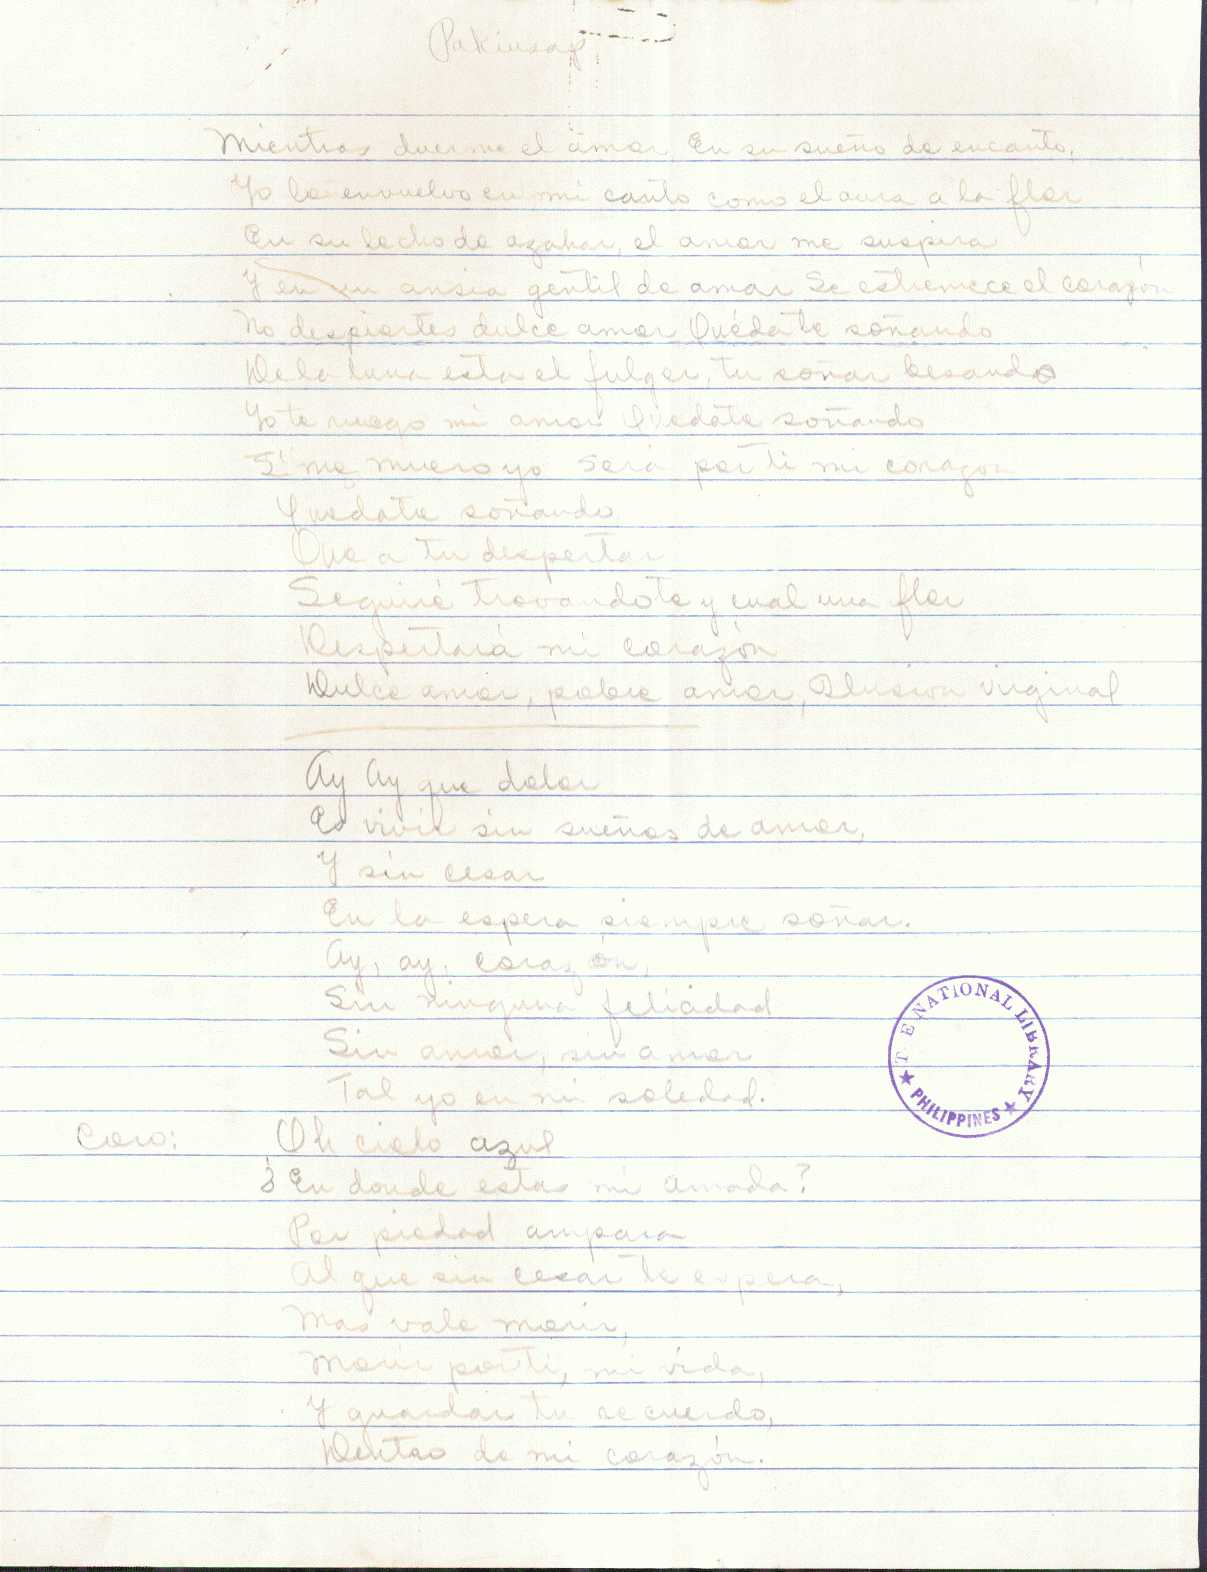 Pakiusap
Mientras duerme el amor, En su sueño de encanto,
Yo lo envuelvo en mi canto como el aura a la flor
En su lecho de azahar, el amor me suspira
Y en un ansia gentil de amar Se estremece el corazón
No despiertes dulce amor Quédate soñando
De la luna esta el fulgor, tu soñar besando
Yo te ruego mi amor Quedate soñando
Si me muero yo Será por ti mi corazon
Quedate soñando
Que a tu despertar
Seguiré trovandote y cual una flor
Despertará mi corazón
Dulce amor, pobre amor, Ilusion virginal
Ay Ay que dolor
Es vivir sin sueños de amor,
Y sin cesar
En la espera siempre soñar.
Ay, ay, corazón,
Sin ninguna felicidad
Sin amor, sin amor
Tal yo en mi soledad.
Coro: Oh cielo azul
¿En donde estas mi amada?
Por piedad ampara
Al que sin cesar te espera,
Mas vale morir,
Morir por ti, mi vida,
Y guardar tu recuerdo,
Dentro de mi corazón.
T E NATIONAL LIBRARY
★ PHILIPPINES ★